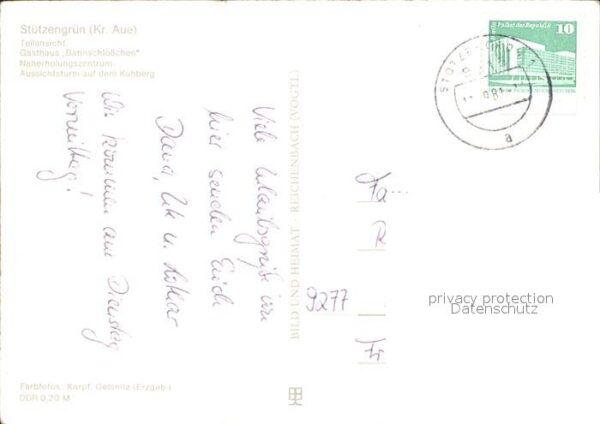 Stützengrün (Kr. Aue)
Teilansicht
Gasthaus „Bahnschlößchen"
Naherholungszentrum
Aussichtsturm auf dem Kuhberg
Viele Urlaubsgrüße von
hier senden Euch
Dana, u. Lothar
Wir kommen am Dienstag
Vormittag!
BILD UND HEIMAT · REICHENBACH (VOGTL)
Palast der Republik 10
a
9277
Fr
privacy protection
Datenschutz
Farbfotos: Karpf, Gelsnitz (Erzgeb.)
DDR 0,20 M